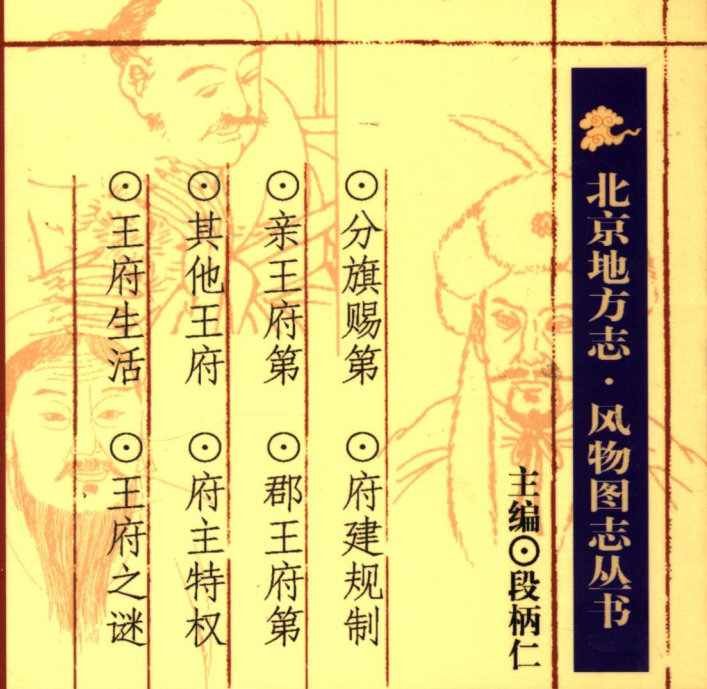 北京地方志·风物图志丛书
主编⊙段柄仁
⊙分旗赐第 ⊙府建规制
⊙亲王府第 ⊙郡王府第
⊙其他王府 ⊙府主特权
⊙王府生活 ⊙王府之谜